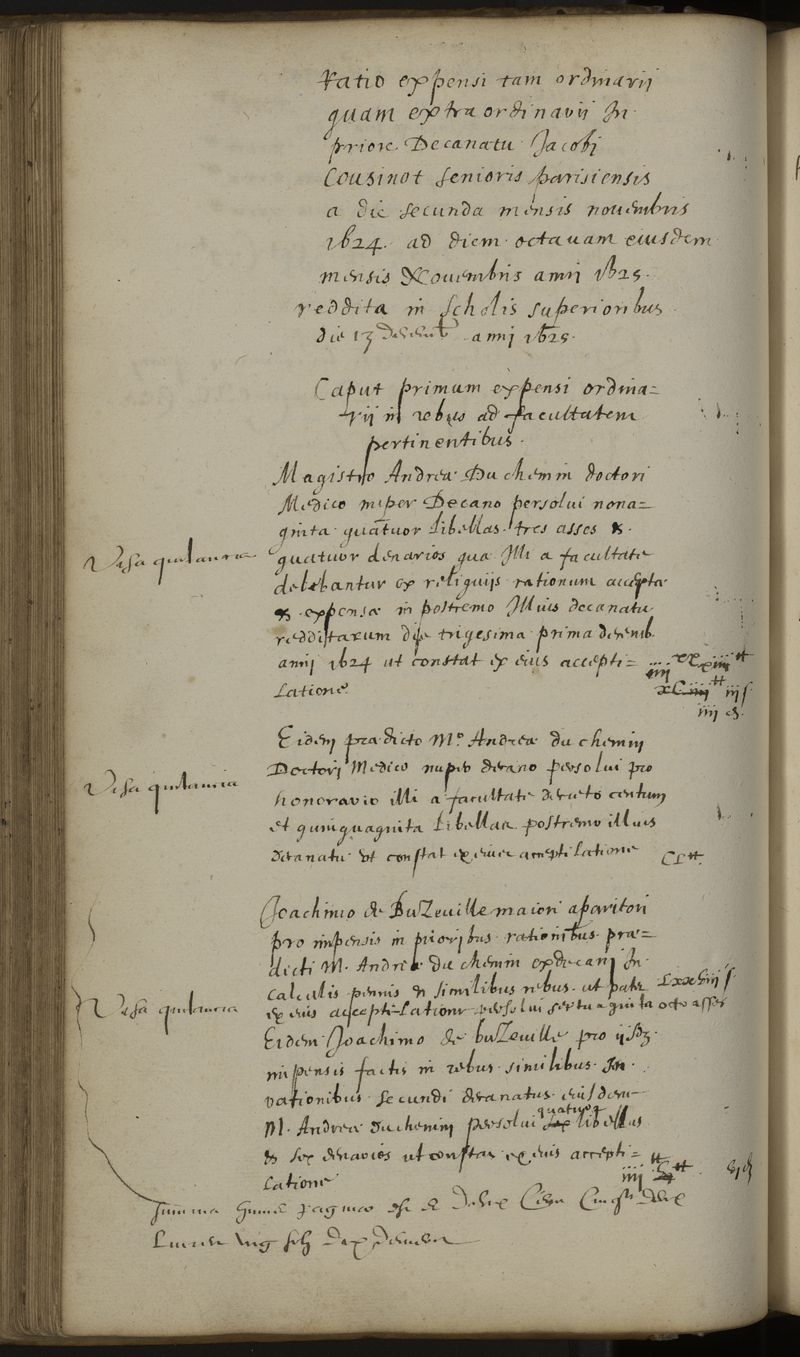 Ratio expensi tam ordinarij
quam extraordinarij In
priore Decanatu Jacobj
Cousinot senioris parisiensis
a die secunda mensis nouembris
1624. ad diem octauam eiusdem
mensis Nouembris annj 1625.
reddita in scholis superioribus
die 13 Decemb annj 1625.
Caput primum expensi ordina=
rij in rebus ad facultatem
pertinentibus.
Magistro Andreæ Du chemin doctori
Medico nuper Decano persolui nona=
ginta quatuor libellas tres asses &
Visa quitancia
quatuor denarios qua Illi a facultate
debebantur ex reliquijs rationum accepta
& expensæ in postremo Illius decanatu
redditarum die trigesima prima decemb.
annj 1624 ut constat ex eius accepti=
latione
iiij s
iiij d.
Eidem prædicto Mo Andreæ du chemin
Visa quitancia
Doctori Medico nuper decano persolui pro
honorario illi a facultate decreto centum
et quinquaginta libellas postremo illius
decanatu ut constat ex eius acceptilatione CL tt.
Joachimo de BuZeuille maiori aparitori
pro impensis in prioribus rationibus præ=
dicti M. Andreæ du chemin exdecani In
calculis pennis & similibus rebus ut patet
Visa quitancia
ex eius acceptilatione persolui septuaginta octo asses
Eidem Joachimo de buZeuille pro
impensis factis in rebus similibus In
rationibus secundi decanatus eiusdem
M. Andreæ duchemin persolui quatuor libellas
& sex denarios ut constat ex eius accepti=
latione
iiij tt